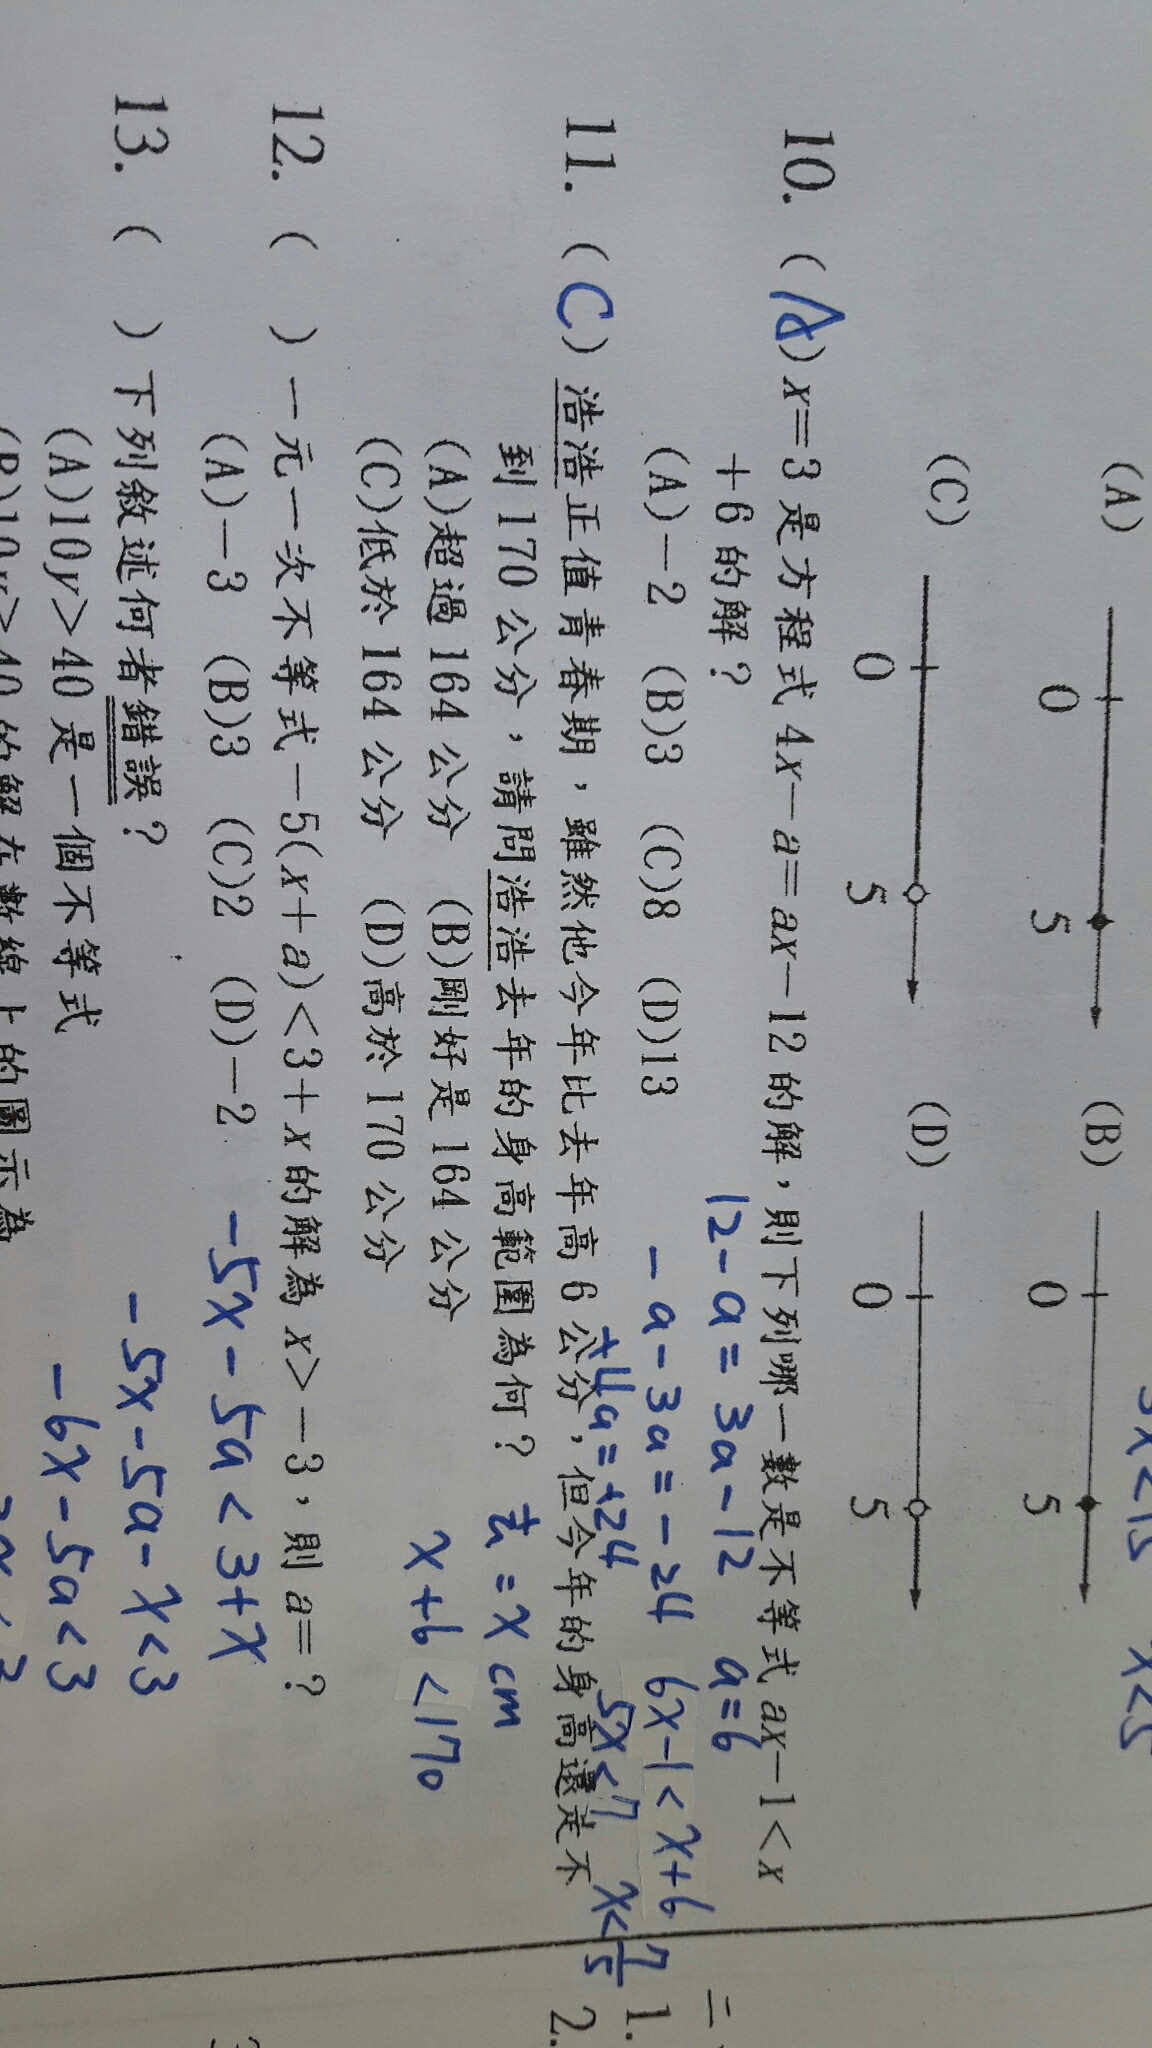 3x<15
x<5
(A) 0 5 (B) 0 5
(C) 0 5 (D) 0 5
10. (A) x=3 是方程式 4x-a=ax-12 的解，則下列哪一數是不等式 ax-1<x
+6 的解？
12-a=3a-12 a=6
(A)-2 (B)3 (C)8 (D)13
-a-3a=-24 6x-1<x+6
+4a=+24 5x<7 x<7/5
11. (C) 浩浩正值青春期，雖然他今年比去年高 6 公分，但今年的身高還是不
到 170 公分，請問浩浩去年的身高範圍為何？
去=x cm
(A)超過 164 公分 (B)剛好是 164 公分
x+6<170
(C)低於 164 公分 (D)高於 170 公分
12. ( ) 一元一次不等式-5(x+a)<3+x 的解為 x>-3，則 a=？
(A)-3 (B)3 (C)2 (D)-2
-5x-5a<3+x
-5x-5a-x<3
-6x-5a<3
13. ( ) 下列敘述何者錯誤？
(A)10y>40 是一個不等式
(B)10y>40 的解在數線上的圖示為
二
1.
2.